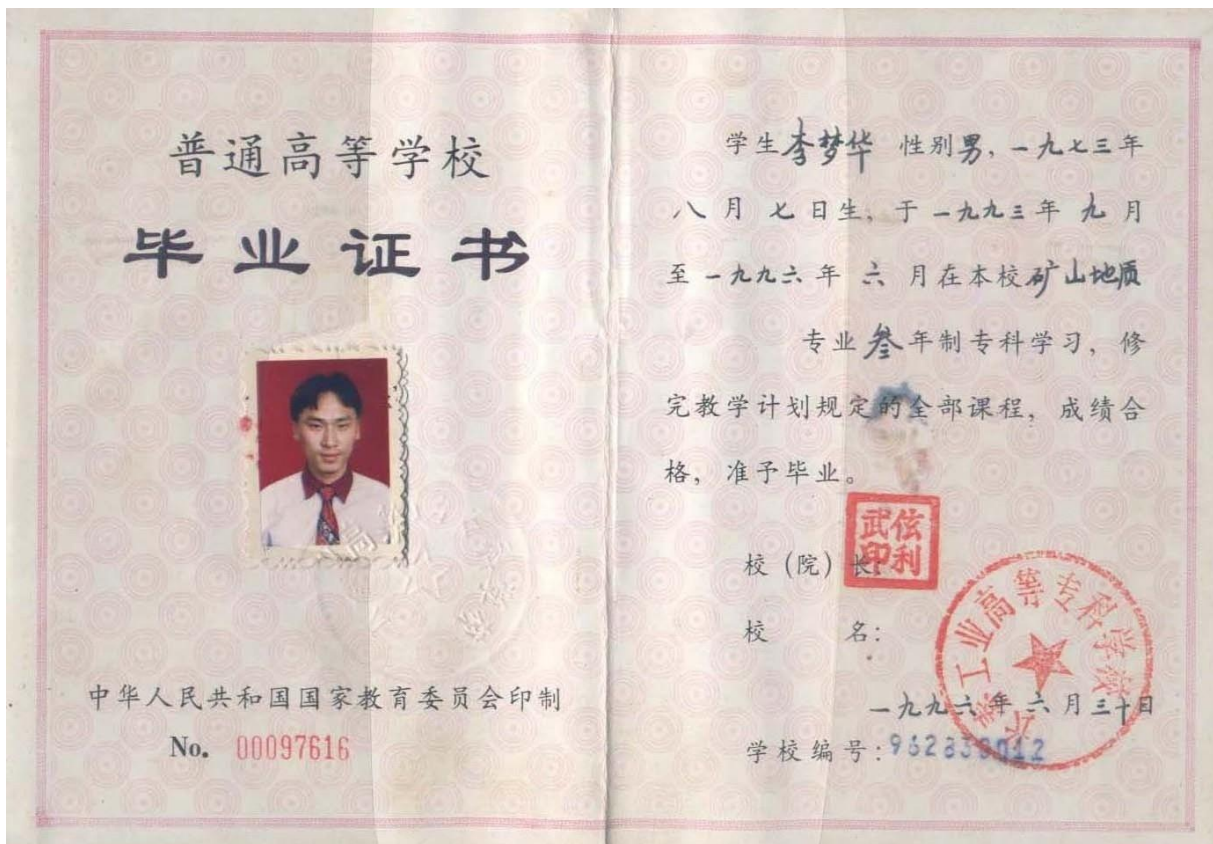 普通高等学校
毕业证书
中华人民共和国国家教育委员会印制
No. 00097616
学生李梦华 性别男，一九七三年
八月七日生，于一九九三年九月
至一九九六年六月在本校矿山地质
专业叁年制专科学习，修
完教学计划规定的全部课程，成绩合
格，准予毕业。
校（院）长：
利武印
校名：
工业高等专科学校
一九九六年六月三十日
学校编号：